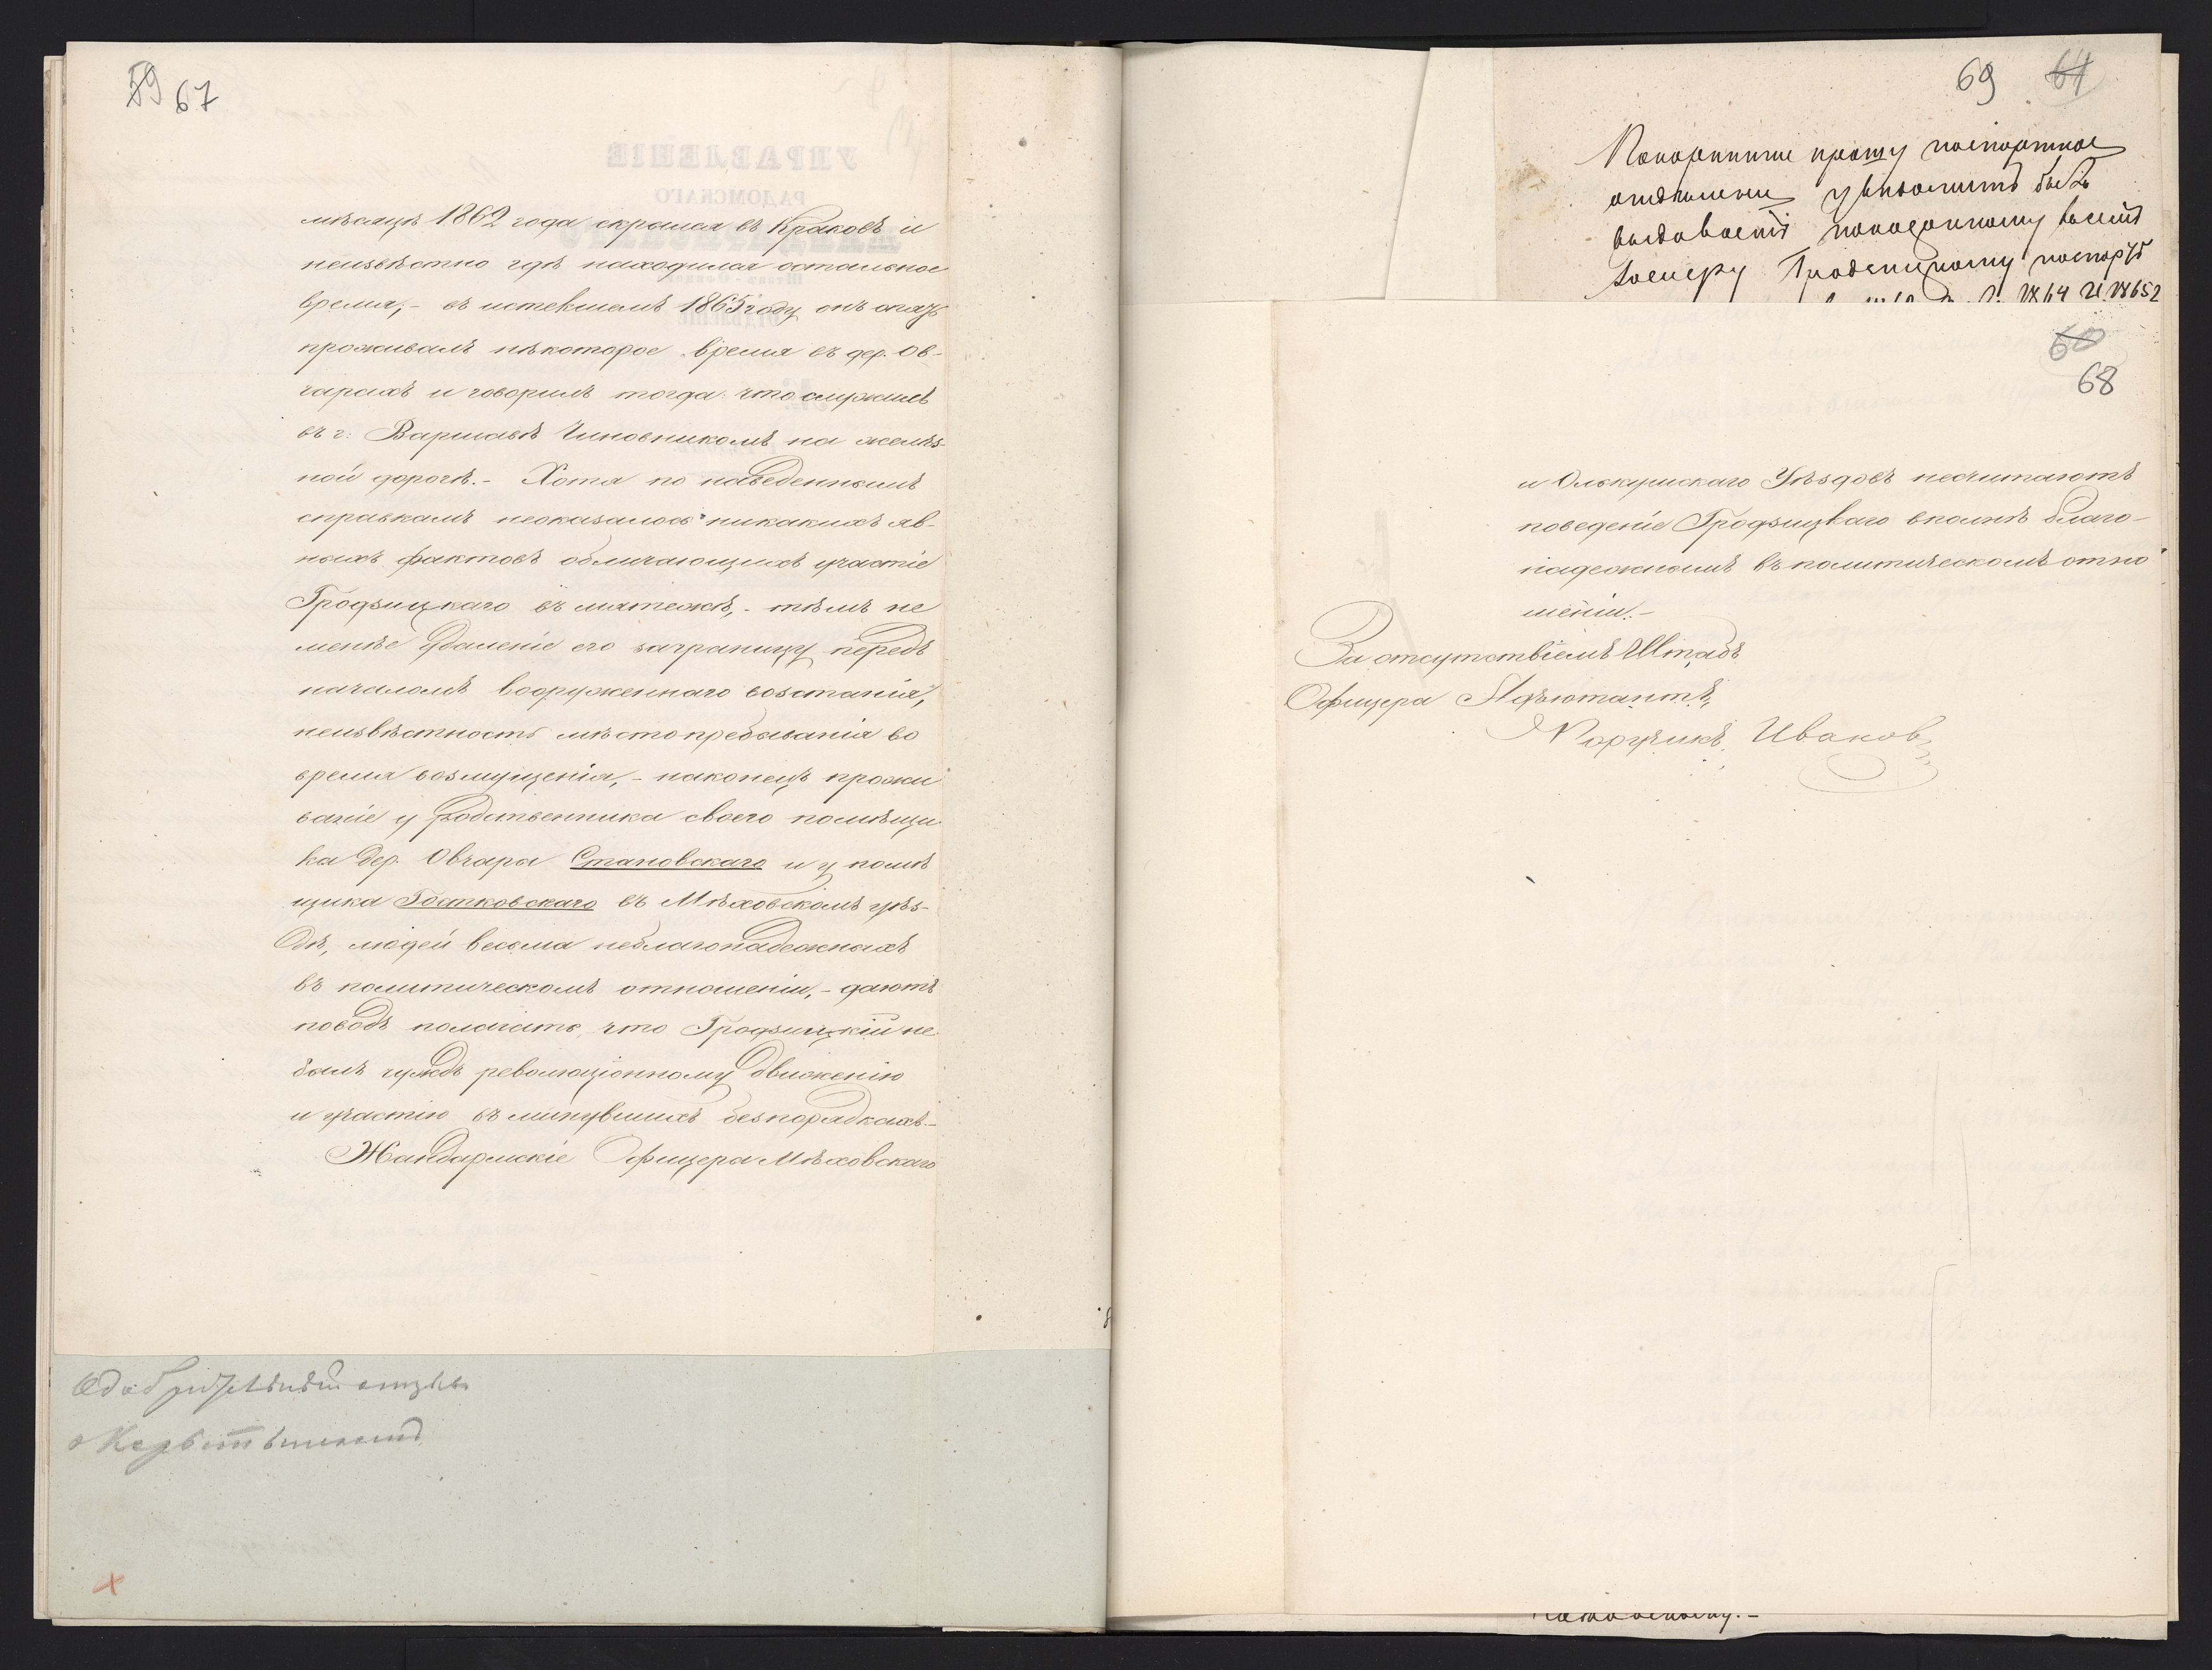 59 67
мѣсяцѣ 1862 года скрылся въ Краковъ и
неизвѣстно гдѣ находился остальное
время,- въ истекшемъ 1865 году онъ опять
проживалъ нѣкоторое время въ дер. Ов-
чарахъ и говорилъ тогда что служилъ
въ г. Варшавѣ Чиновникомъ на желѣз-
ной дорогѣ.- Хотя по наведеннымъ
справкамъ неоказалось никакихъ яв-
ныхъ фактовъ обличающихъ участіе
Гродзицкаго въ мятежѣ,- тѣмъ не
менѣе удаленіе его заграницу передъ
началомъ вооруженнаго возстанія,
неизвѣстность мѣстопребыванія во
время возмущенія,- наконецъ прожи
ваніе у родственника своего помѣщи
ка дер. Овчары Становскаго и у помѣ
щика в Мѣховскомъ уѣз-
дѣ, людей весьма неблагонадежныхъ
въ политическомъ отношеніи,- даютъ
поводъ полагать, что Гродзицкій не
былъ чуждъ революціонному движенію
и участію въ минувшихъ безпорядкахъ.-
Жандармскіе Офицеры Мѣховскаго
69 61
Покорнѣйше прошу паспортное
отдѣленіе увѣдомить былъ
выдаваемъ
Гродзицкому паспортъ
60
68
и Олькушскаго Уѣздовъ несчитаютъ
поведеніе Гродзицкаго вполнѣ благо-
надежнымъ въ политическомъ отно
шеніи.-
За отсутствіемъ Штабъ
Офицера Адъютантъ,
Поручикъ Иванов